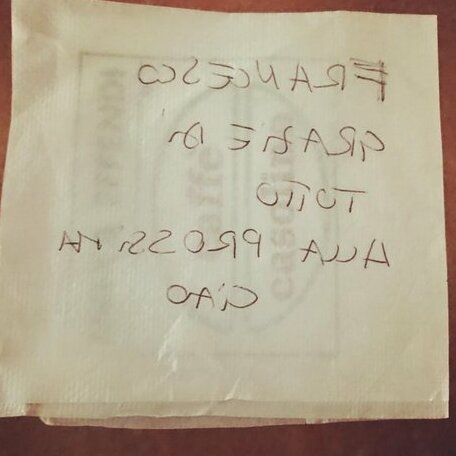 FRANCESCO
GRAZIE DI
TUTTO
ALLA PROSSIMA
CIAO